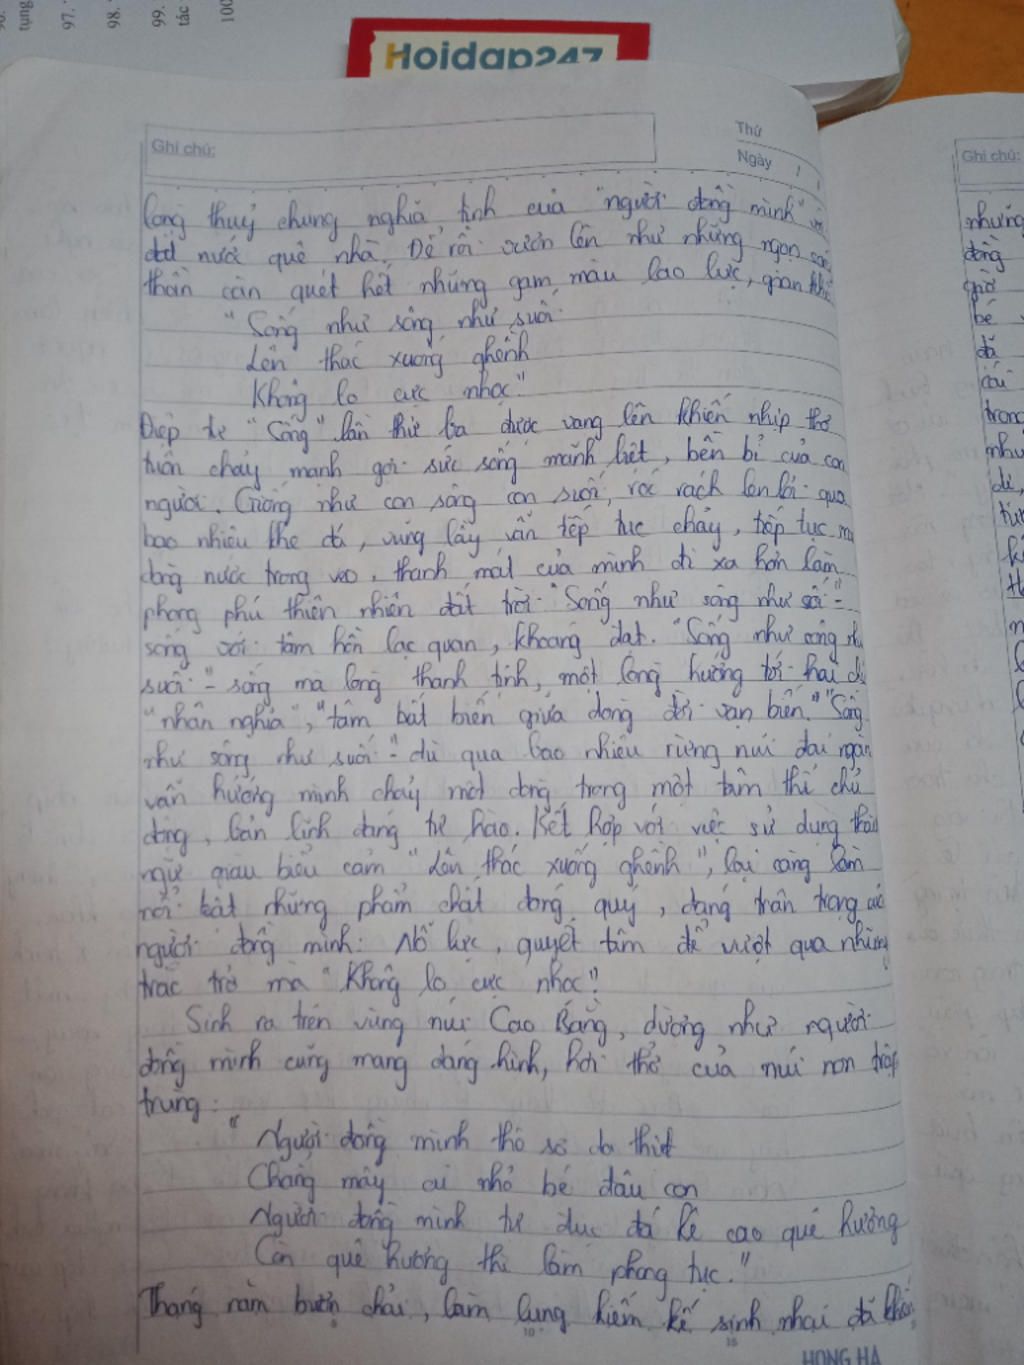 tụng
97.
98.
99.
tác
100
Hoidap247
Ghi chú:
Thứ
Ngày
lòng thuỷ chung nghĩa tình của "người đồng mình" với
đất nước quê nhà. Để rồi vươn lên như những ngọn
thần càn quét hết những gam màu lao lực, gian khổ
"Sống như sông như suối
Lên thác xuống ghềnh
Không lo cực nhọc"
Điệp từ "Sống" lần thứ ba được vang lên khiến nhịp thơ
tuôn chảy mạnh gợi sức sống mãnh liệt, bền bỉ của con
người. Giống như con sông con suối, róc rách len lỏi qua
bao nhiêu khe đá, vũng lầy vẫn tiếp tục chảy, tiếp tục
dòng nước trong veo, thanh mát của mình đi xa hơn làm
phong phú thiên nhiên đất trời. "Sống như sông như suối" -
sống với tâm hồn lạc quan, khoáng đạt. "Sống như sông như
suối" - sống mà lòng thanh tịnh, một lòng hướng tới hai chữ
"nhân nghĩa", "tâm bất biến giữa dòng đời vạn biến." "Sống
như sông như suối" - dù qua bao nhiêu rừng núi đại ngàn
vẫn hướng mình chảy một dòng trong một tâm thế chủ
động, bản lĩnh đáng tự hào. Kết hợp với việc sử dụng thành
ngữ giàu biểu cảm "Lên thác xuống ghềnh", lại càng làm
nổi bật những phẩm chất đáng quý, đáng trân trọng của
người đồng mình: Nỗ lực, quyết tâm để vượt qua những
trắc trở mà "Không lo cực nhọc".
Sinh ra trên vùng núi Cao Bằng, dường như người
đồng mình cũng mang dáng hình, hơi thở của núi non trập
trùng:
"Người đồng mình thô sơ da thịt
Chẳng mấy ai nhỏ bé đâu con
Người đồng mình tự đục đá kê cao quê hương
Còn quê hương thì làm phong tục."
Tháng năm bươn chải, làm lụng kiếm kế sinh nhai đã khiến
10
15
HONG HA
Ghi chú:
những
đồng
giờ
bé
đã
cái
trong
như
dị,